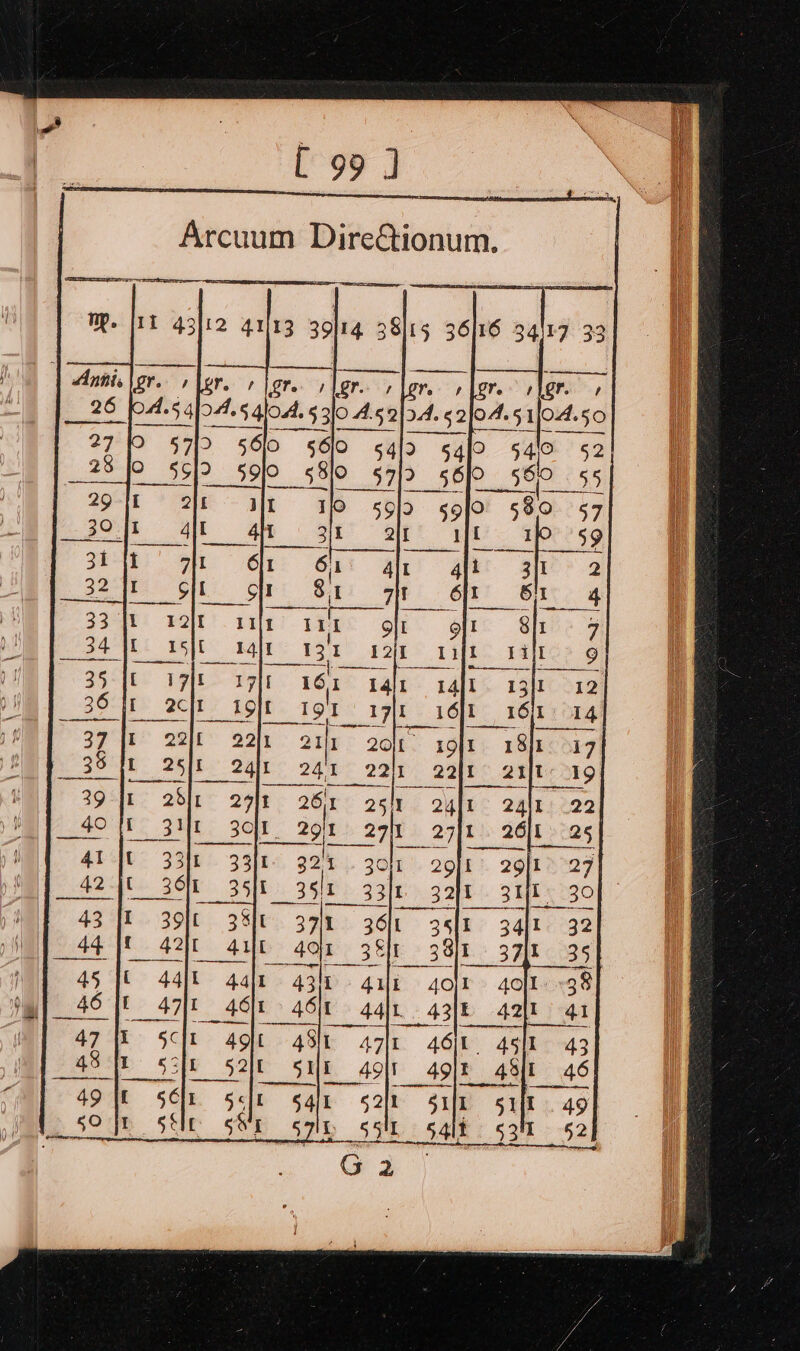 [ 99 ]
Arcuum Directionum.
♍. 11 43 12 41 13 39 14 38 15 36 16 34 17 33
Anni. gr. ′ gr. ′ gr. ′ gr. ′ gr. ′ gr. ′ gr. ′
26 0A.54 0A.54 0A.53 0A.52 0A.52 0A.51 0A.50
27 0 57 0 56 0 56 0 54 0 54 0 54 0 52
28 0 59 0 59 0 58 0 57 0 56 0 56 0 55
29 1 2 1 1 1 1 0 59 0 59 0 58 0 57
30 1 4 1 4 1 3 1 2 1 1 1 1 0 59
31 1 7 1 6 1 6 1 4 1 4 1 3 1 2
32 1 9 1 9 1 8 1 7 1 6 1 6 1 4
33 1 12 1 11 1 11 1 9 1 9 1 8 1 7
34 1 15 1 14 1 13 1 12 1 11 1 11 1 9
35 1 17 1 17 1 16 1 14 1 14 1 13 1 12
36 1 20 1 19 1 19 1 17 1 16 1 16 1 14
37 1 22 1 22 1 21 1 20 1 19 1 18 1 17
38 1 25 1 24 1 24 1 22 1 22 1 21 1 19
39 1 28 1 27 1 26 1 25 1 24 1 24 1 22
40 1 31 1 30 1 29 1 27 1 27 1 26 1 25
41 1 33 1 33 1 32 1 30 1 29 1 29 1 27
42 1 36 1 35 1 35 1 33 1 32 1 31 1 30
43 1 39 1 38 1 37 1 36 1 35 1 34 1 32
44 1 42 1 41 1 40 1 38 1 38 1 37 1 35
45 1 44 1 44 1 43 1 41 1 40 1 40 1 38
46 1 47 1 46 1 46 1 44 1 43 1 42 1 41
47 1 50 1 49 1 48 1 47 1 46 1 45 1 43
48 1 53 1 52 1 51 1 49 1 49 1 48 1 46
49 1 56 1 55 1 54 1 52 1 51 1 51 1 49
50 1 58 1 58 1 57 1 55 1 54 1 53 1 52
G 2